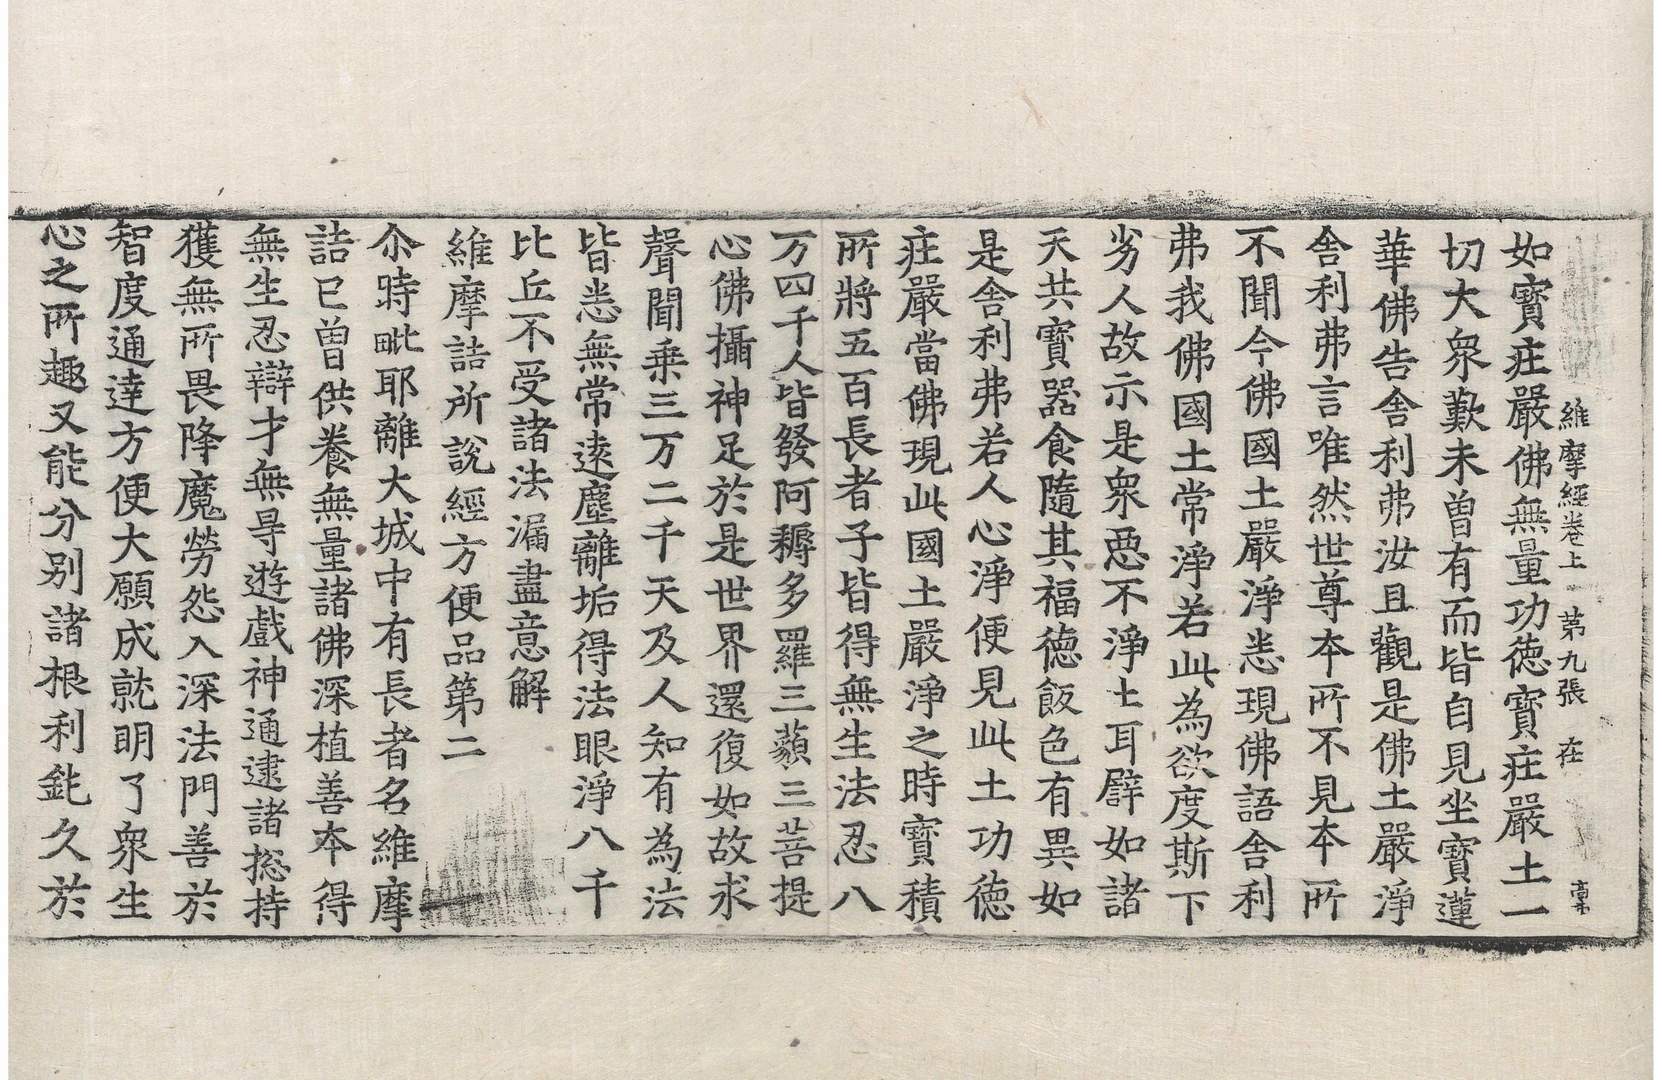 維摩經卷上 第九張 在
如寶疘嚴佛無量功德寶疘嚴土一
切大衆歎未曾有而皆自見坐寶蓮
華佛告舍利弗汝且觀是佛土嚴淨
舍利弗言唯然世尊本所不見本所
不聞今佛國土嚴淨悉現佛語舍利
弗我佛國土常淨若此為欲度斯下
劣人故示是衆惡不淨土耳譬如諸
天共寶器食隨其福德飯色有異如
是舍利弗若人心淨便見此土功德
疘嚴當佛現此國土嚴淨之時寶積
所將五百長者子皆得無生法忍八
万四千人皆發阿耨多羅三藐三菩提
心佛攝神足於是世界還復如故求
聲聞乘三万二千天及人知有為法
皆悉無常遠塵離垢得法眼淨八千
比丘不受諸法漏盡意解
維摩詰所說經方便品第二
尒時毗耶離大城中有長者名維摩
詰已曾供養無量諸佛深植善本得
無生忍辯才無㝵遊戲神通逮諸捴持
獲無所畏降魔勞怨入深法門善於
智度通達方便大願成就明了衆生
心之所趣又能分別諸根利鈍久於